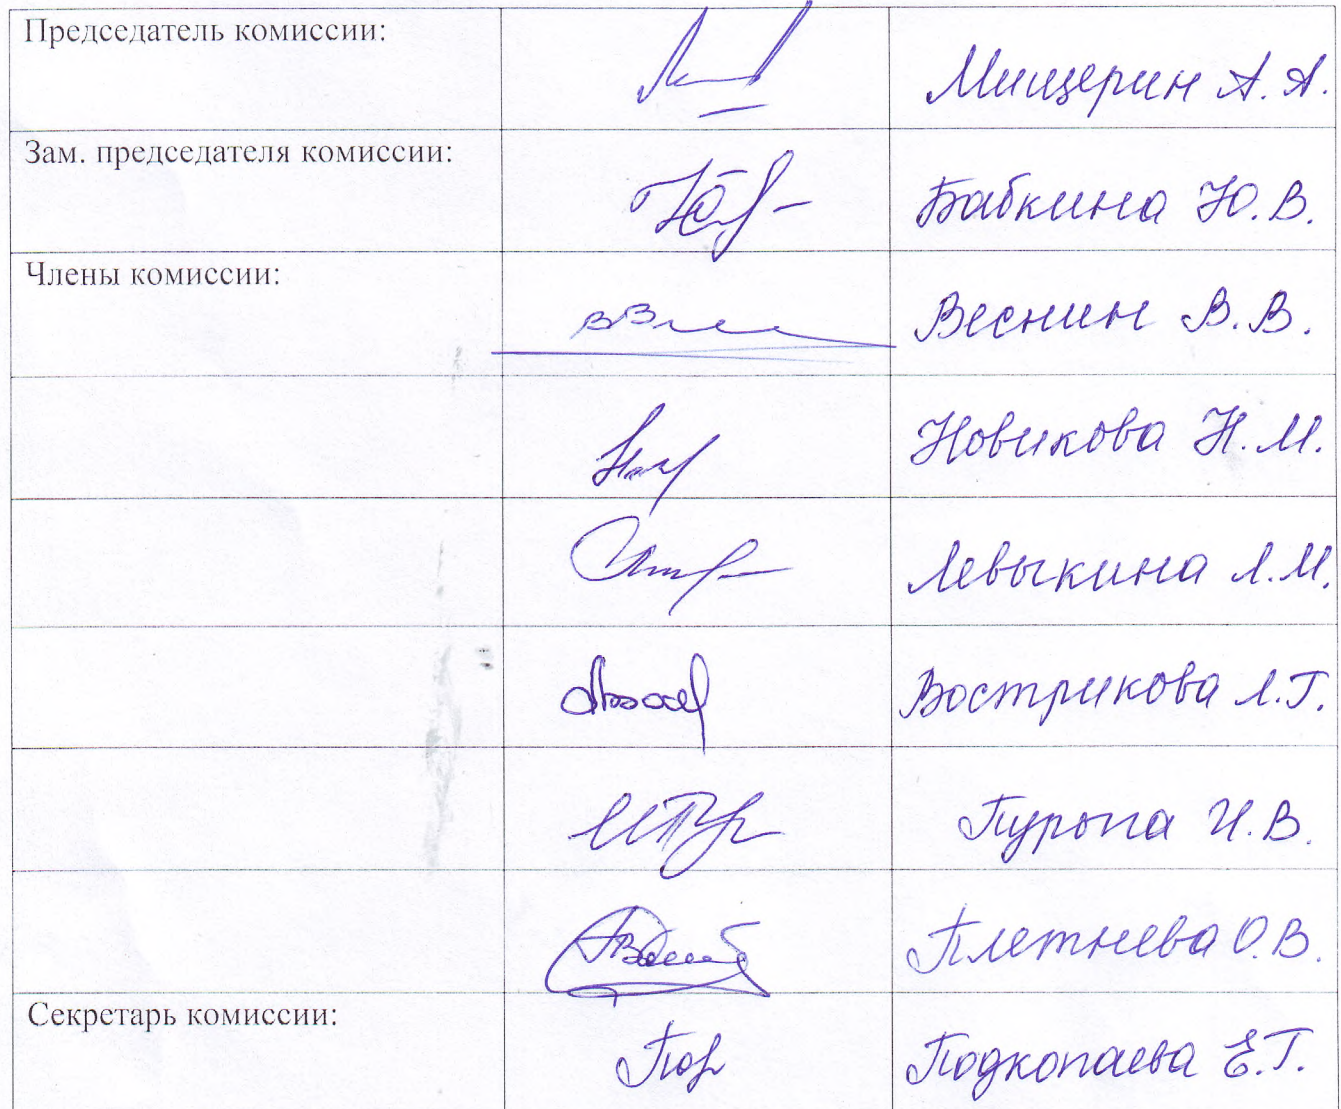 Председатель комиссии: Мищерин А. А.
Зам. председателя комиссии: Бабкина Ю. В.
Члены комиссии: Веснин В. В.
Новикова Н. М.
Левыкина Л. М.
Вострикова Л. Г.
И. В.
Плетнева О. В.
Секретарь комиссии: Подкопаева Е. Г.